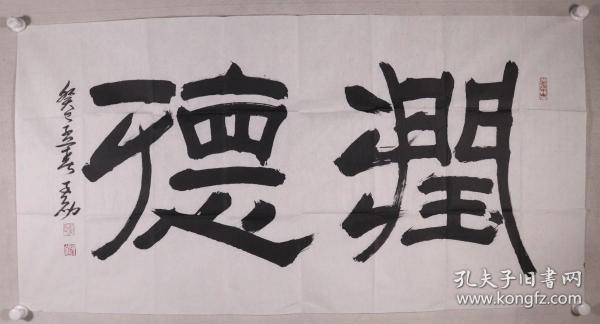 潤德
癸巳立春
孔夫子旧书网
www.kongfz.com